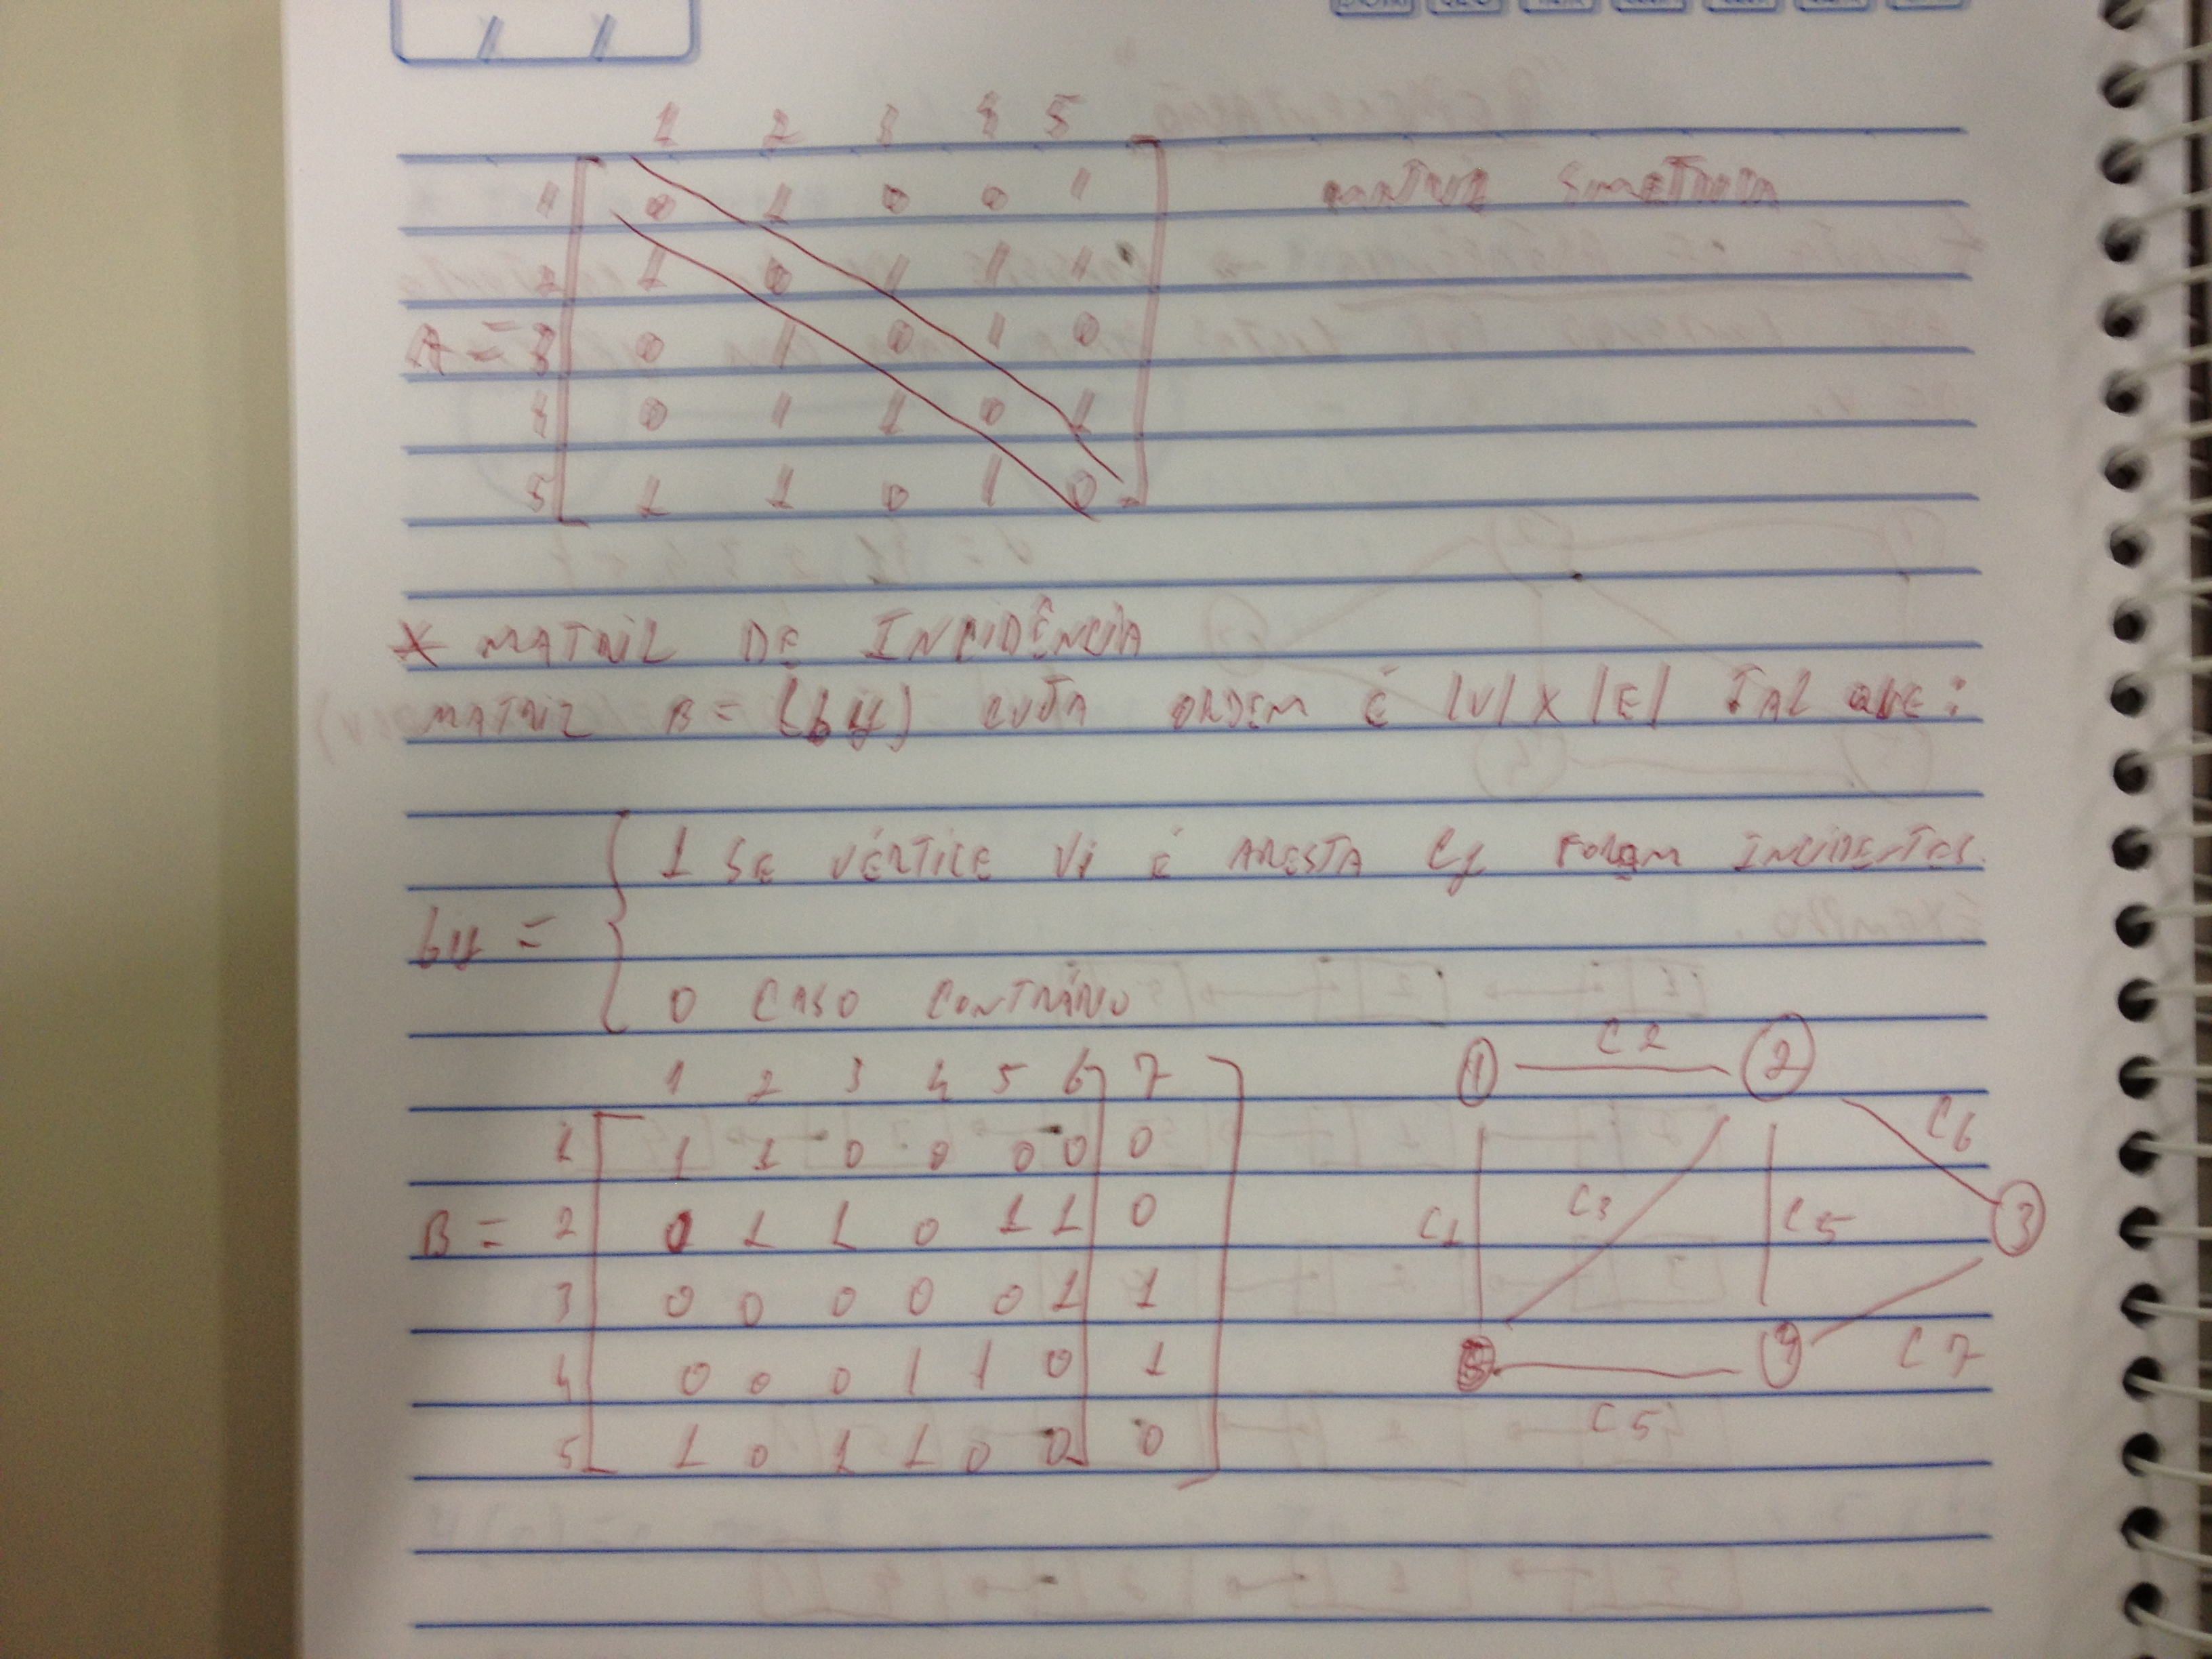 1 2 3 4 5
1 0 1 0 0 1 MATRIZ SIMETRICA
2 1 0 1 1 1
A = 3 0 1 0 1 0
4 0 1 1 0 1
5 1 1 0 1 0
* MATRIZ DE INCIDÊNCIA
MATRIZ B = (bij) CUJA ORDEM É |V| X |E| TAL QUE:
1 SE VÉRTICE Vi E ARESTA Cj FOREM INCIDENTES.
bij =
0 CASO CONTRÁRIO
1 2 3 4 5 6 7
1 1 1 0 0 0 0 0
B = 2 0 1 1 0 1 1 0
3 0 0 0 0 0 1 1
4 0 0 0 1 1 0 1
5 1 0 1 1 0 0 0
1 C2 2
C6
C1 C3 C5 3
5 4 C7
C5